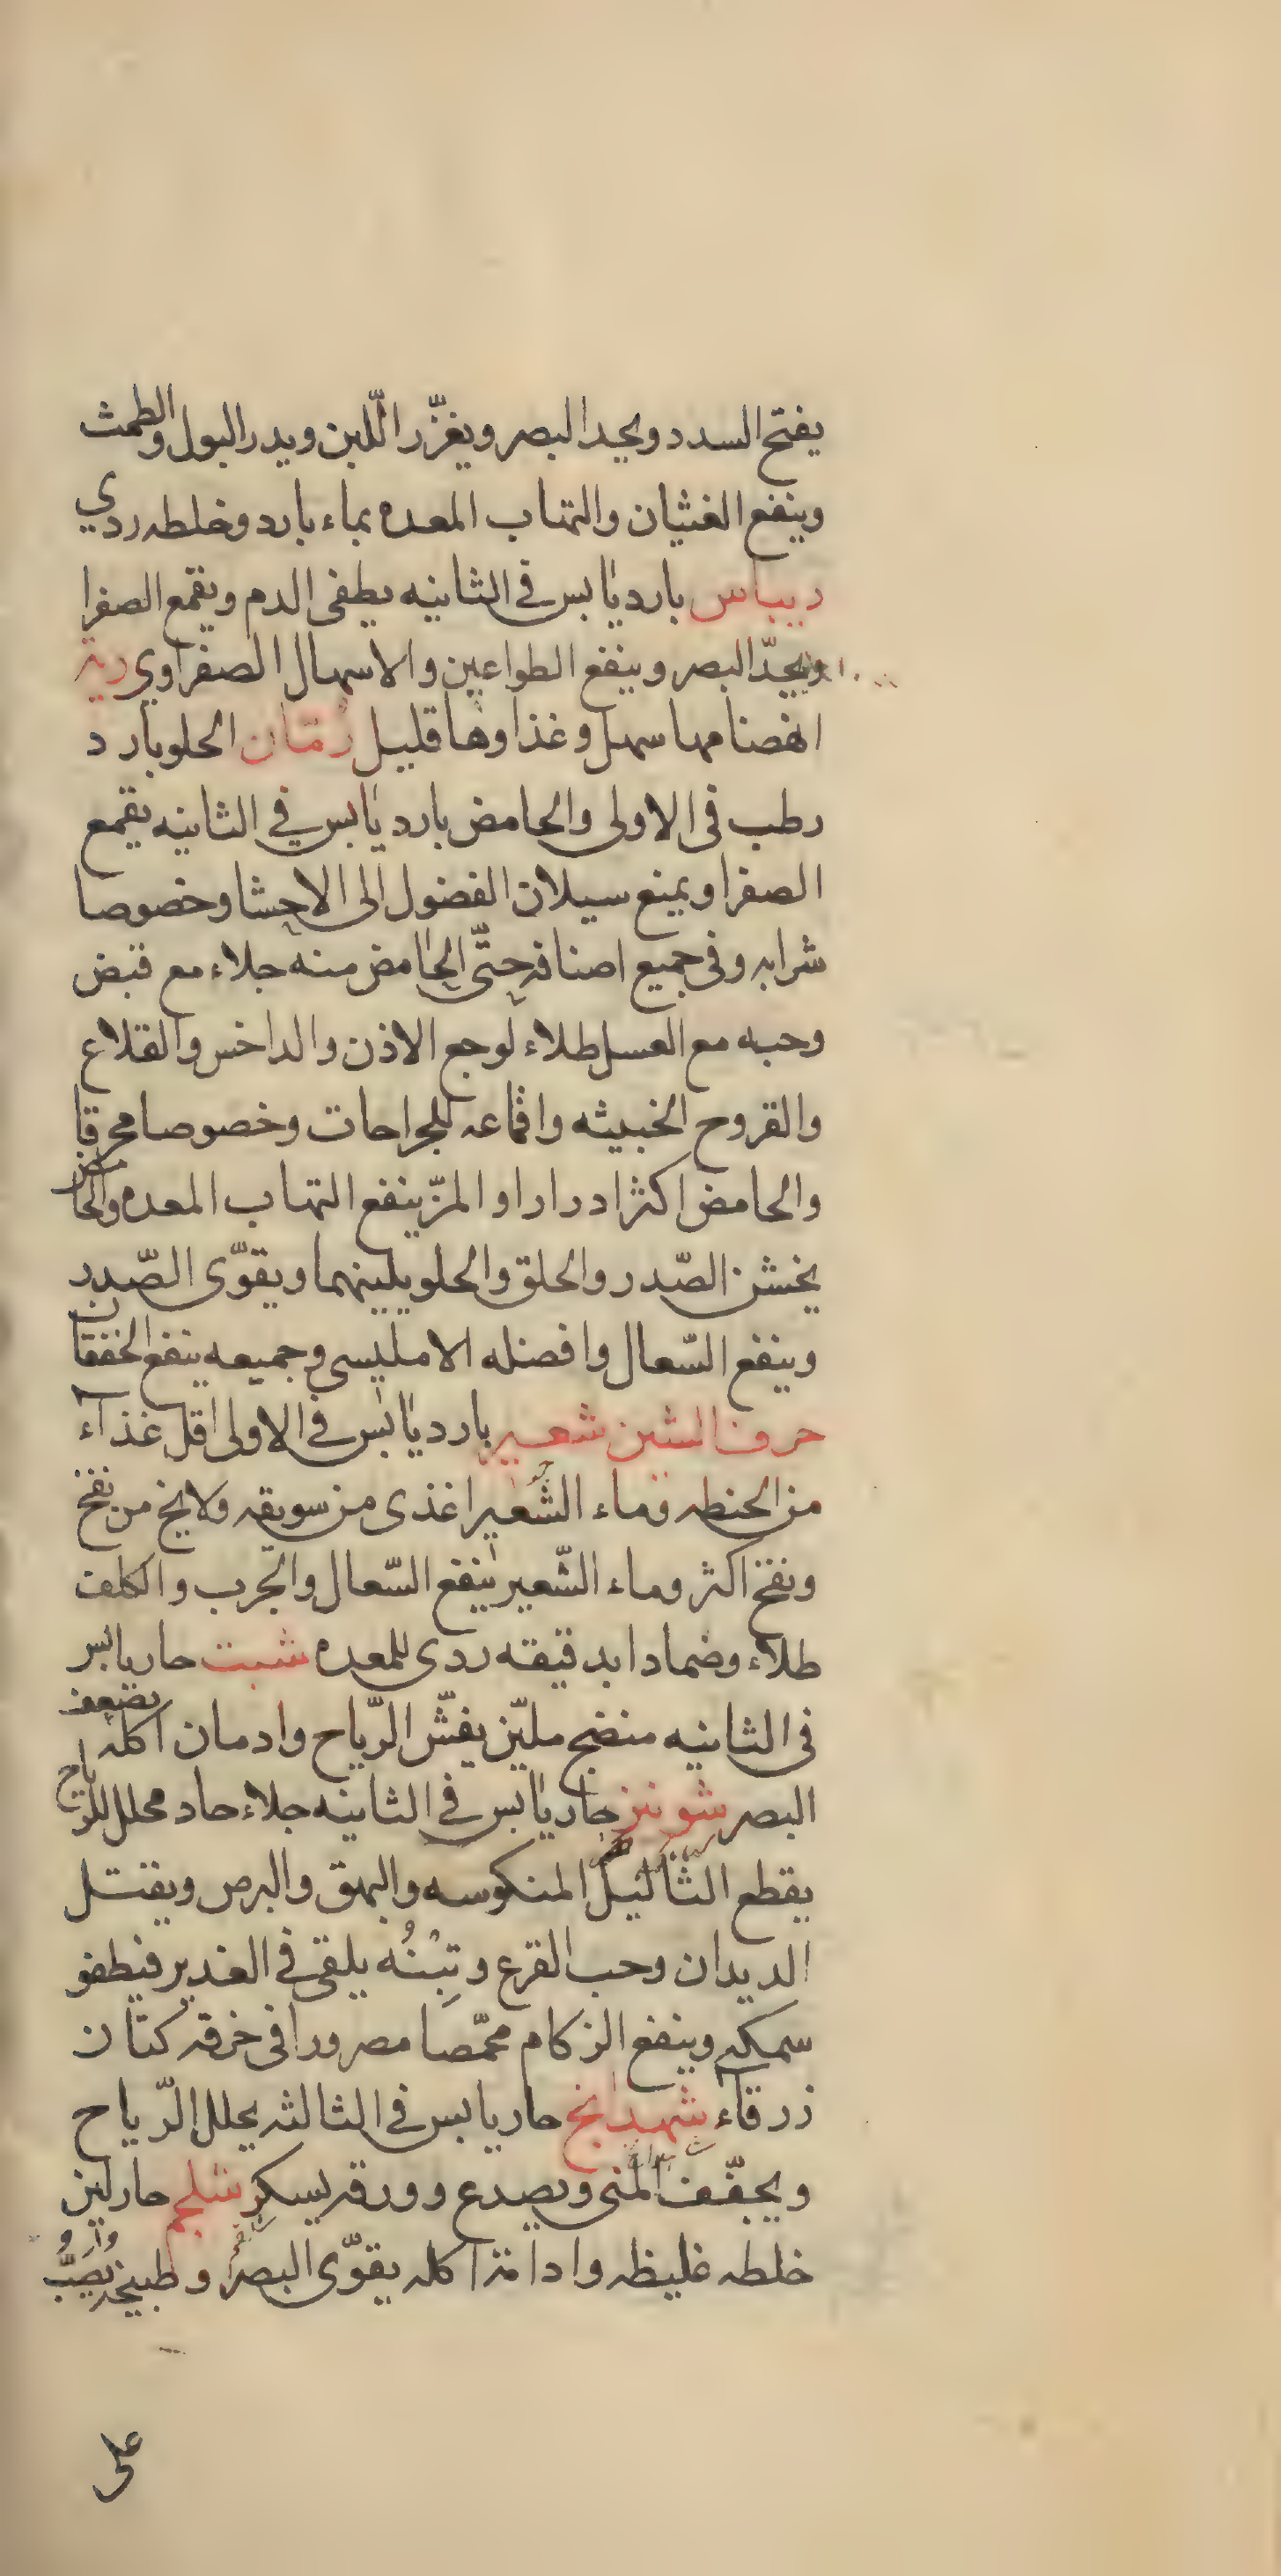 يفتح السدد ويحد البصر ويغزّر اللّبن ويدر البول والطمث
وينفع الغثيان والتهاب المعده بماء بارد وخلطه ردي
ريباس بارد يابس في الثانيه يطفى الدم ويقمع الصفرا
ويحدّ البصر وينفع الطواعين والاسهال الصفراوي رية
انهضامها سهل وغذاوها قليل رُمّان الحلو بارد
رطب في الاولى والحامض بارد يابس في الثانيه يقمع
الصفرا ويمنع سيلان الفضول الى الاحشا وخصوصا
شرابه وفي جميع اصنافه حتّى الحامض منه جلاء مع قبض
وحبه مع العسل طلاء لوجع الاذن والداخس والقلاع
والقروح الخبيثه واقماعه للجراحات وخصوصا محرقا
والحامض اكثر ادرارا والمزّ ينفع التهاب المعده والحامض
يخشن الصّدر والحلق والحلو يلينهما ويقوّى الصّدر
وينفع السّعال وافضله الامليسى وجميعه ينفع الخفقان
حرف الشين شعير بارد يابس في الاولى اقل غذآء
من الحنطه وماء الشّعير اغذى من سويقه ولا يخ من نفخ
ونفخ اكثر وماء الشّعير ينفع السّعال والجرب والكلف
طلاء وضمادا بدقيقه ردى للمعده شبت حار يابس
في الثانيه منضج مليّن يفشّ الرّياح وادمان اكله يضعف
البصر شونيز حار يابس في الثانيه جلاء حاد محلل للرياح
يقطع الثآليل المنكوسه والبهق والبرص ويقتل
الديدان وحب القرع وتِبْنُه يلقى في الغدير فيطفو
سمكه وينفع الزكام محمّصا مصرورا في خرقه كتّان
زرقآء شهدانج حار يابس في الثالثه يحلل الرّياح
ويجفّف المنى ويصدع وورقه يسكر شلجم حار لين
خلطه غليظه وادامة اكله يقوّى البصر وطبيخه يُصَبُّ
على